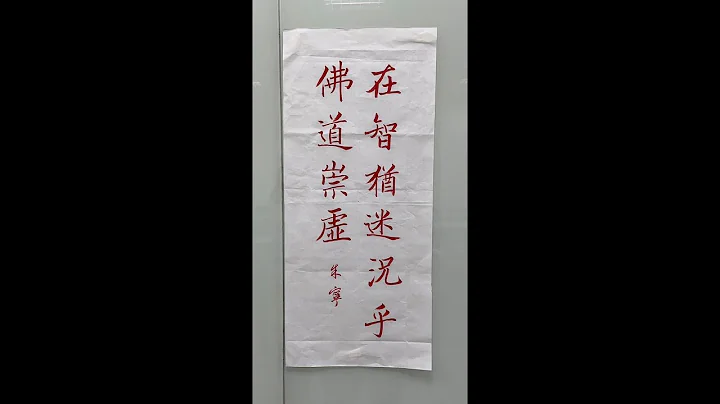 在智猶迷況乎
佛道崇虛
朱寧